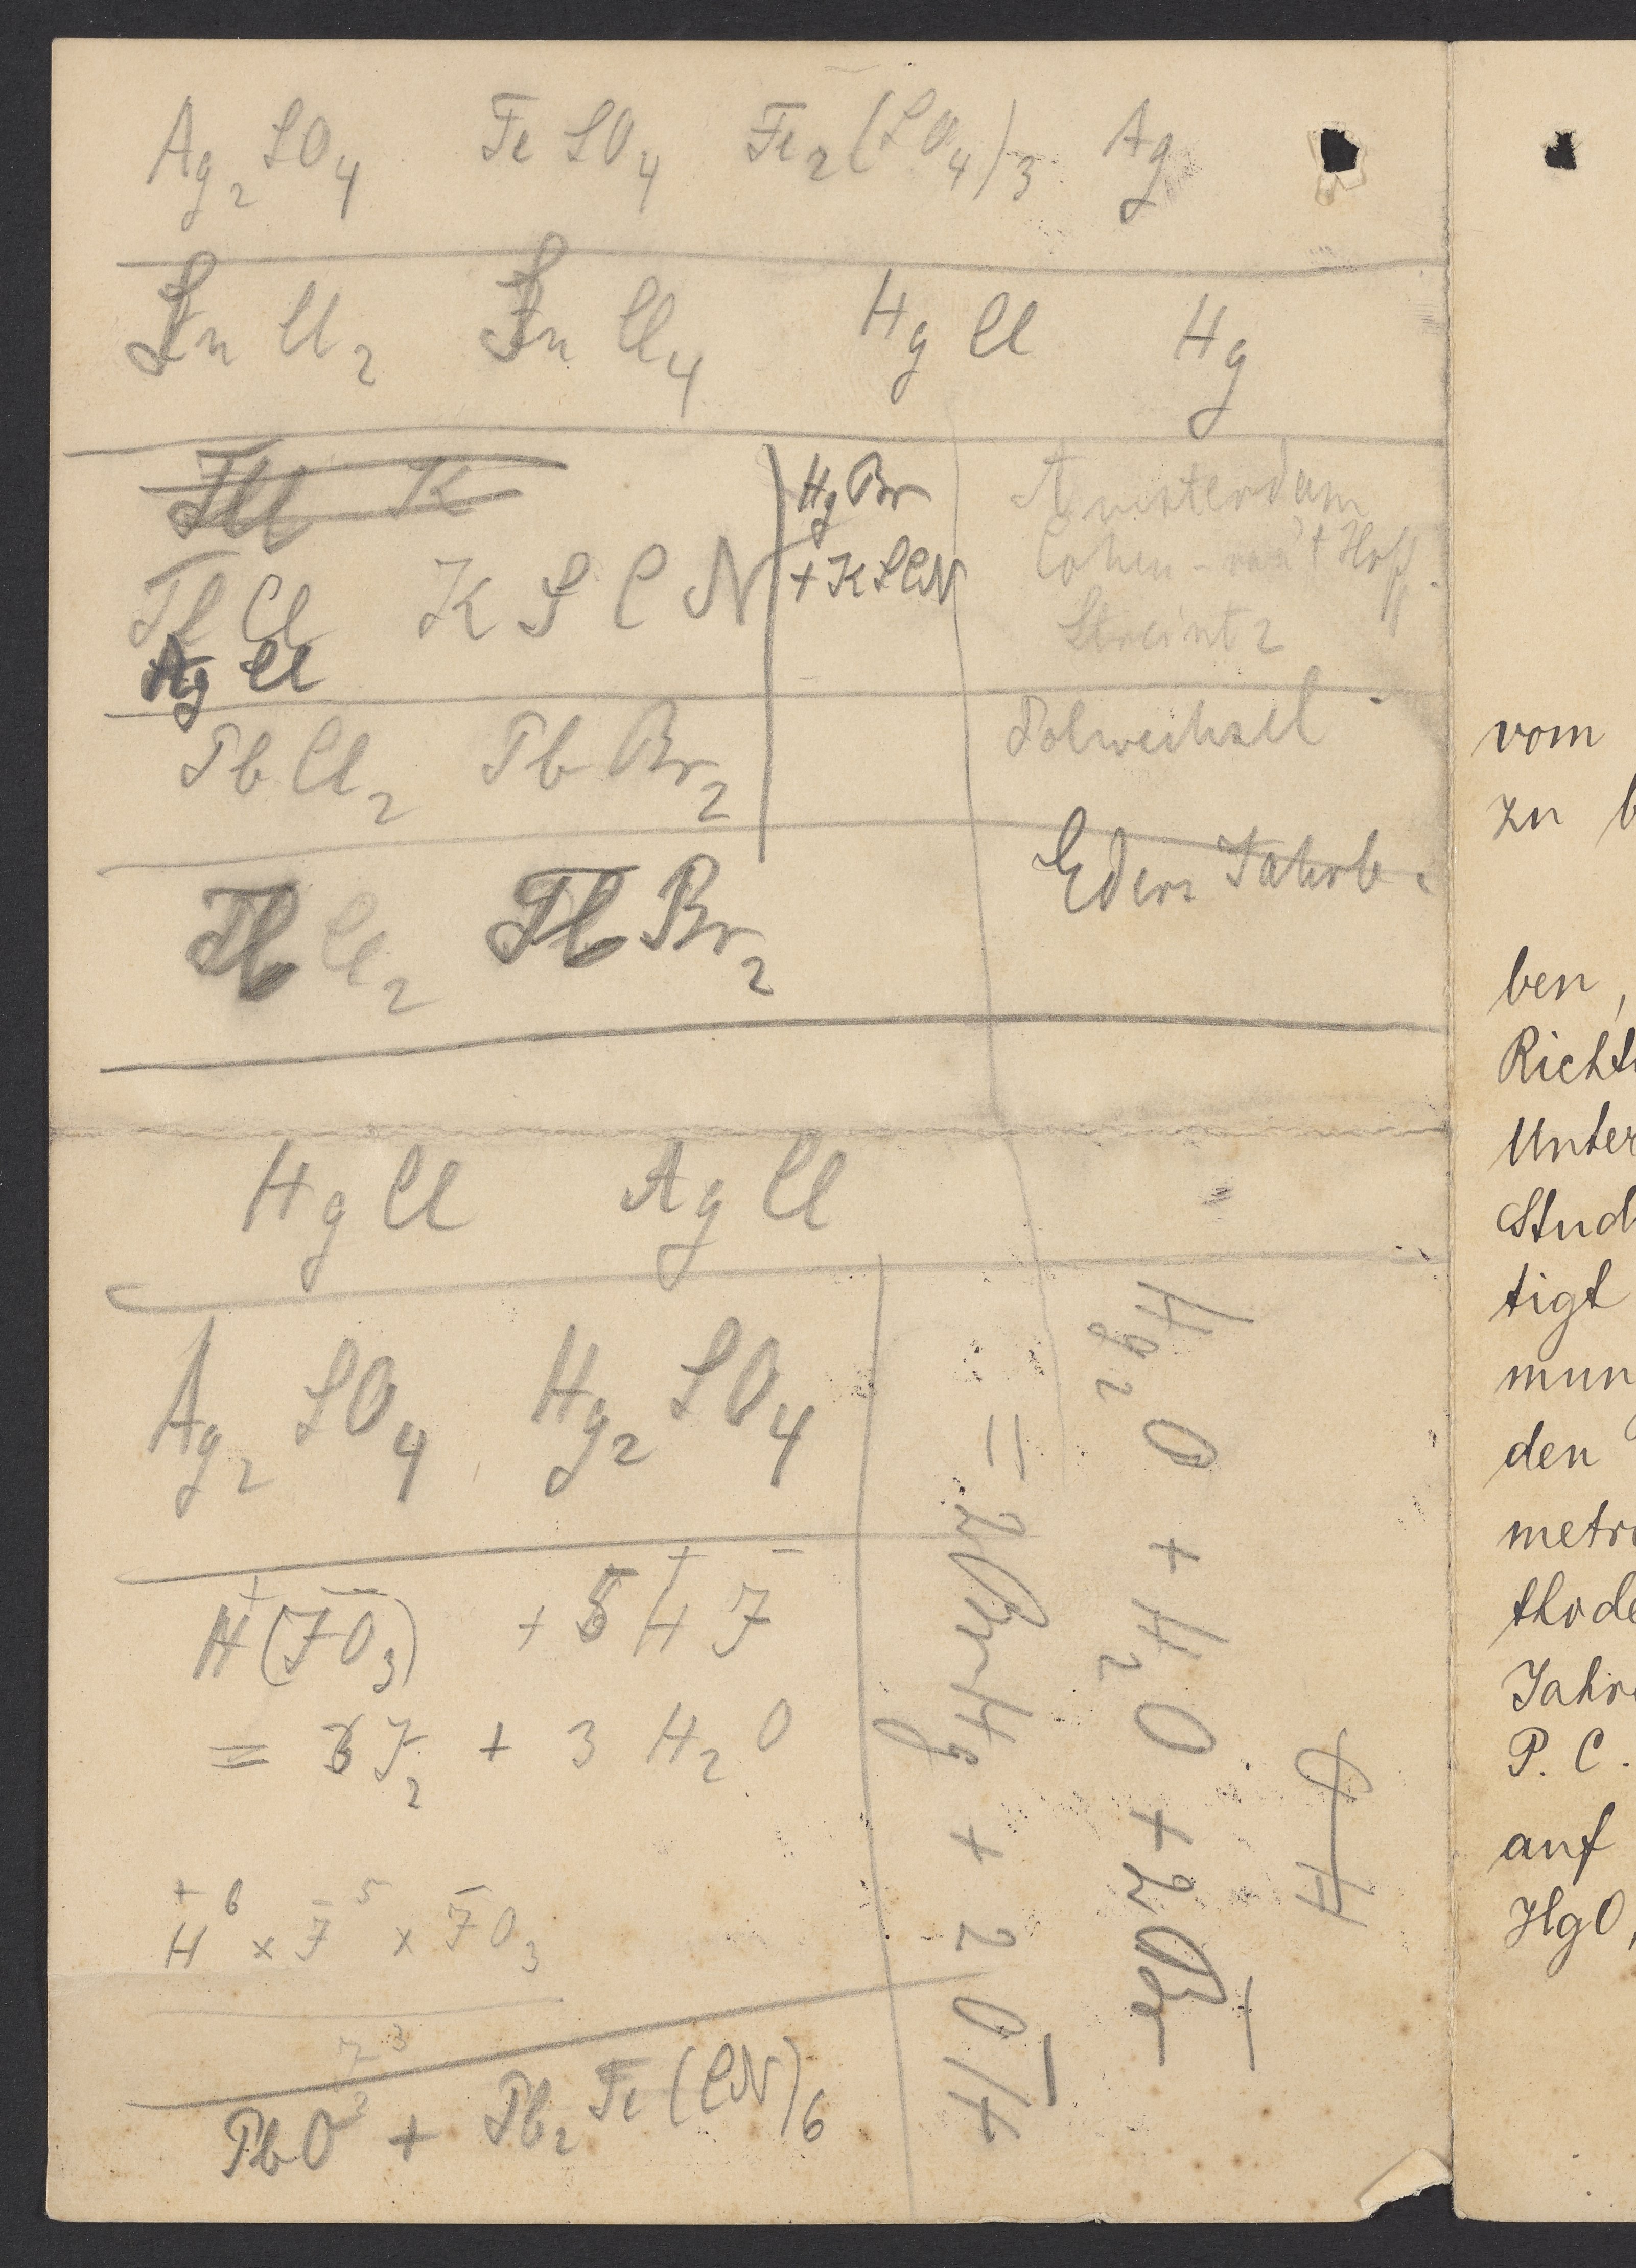 Ag₂SO₄ FeSO₄ Fe₂(SO₄)₃ Ag
SnCl₂ SnCl₄ HgCl Hg
K
TlCl KSCN
AgCl
HgBr
+KSCN
Amsterdam
Cohen – van't Hoff.
Streintz
PbCl₂ PbBr₂
Polwechsel
TlCl₂ TlBr₂
Eders Jahrb.
HgCl AgCl
Ag₂SO₄ Hg₂SO₄
H⁺(JO₃)⁻ + 5H⁺J⁻
= 3J₂ + 3H₂O
H⁺⁶ × J⁻⁵ × J⁻O₃
J₂³
PbO + Pb₂Fe(CN)₆
Hg₂O + H₂O + 2Br⁻
= 2BrHg + 2OH⁻
OH
vom
zu b
ben,
Richt
Unter
Stud
tigt
mun
den
metr
thode
Jahr
P. C.
auf
HgO,